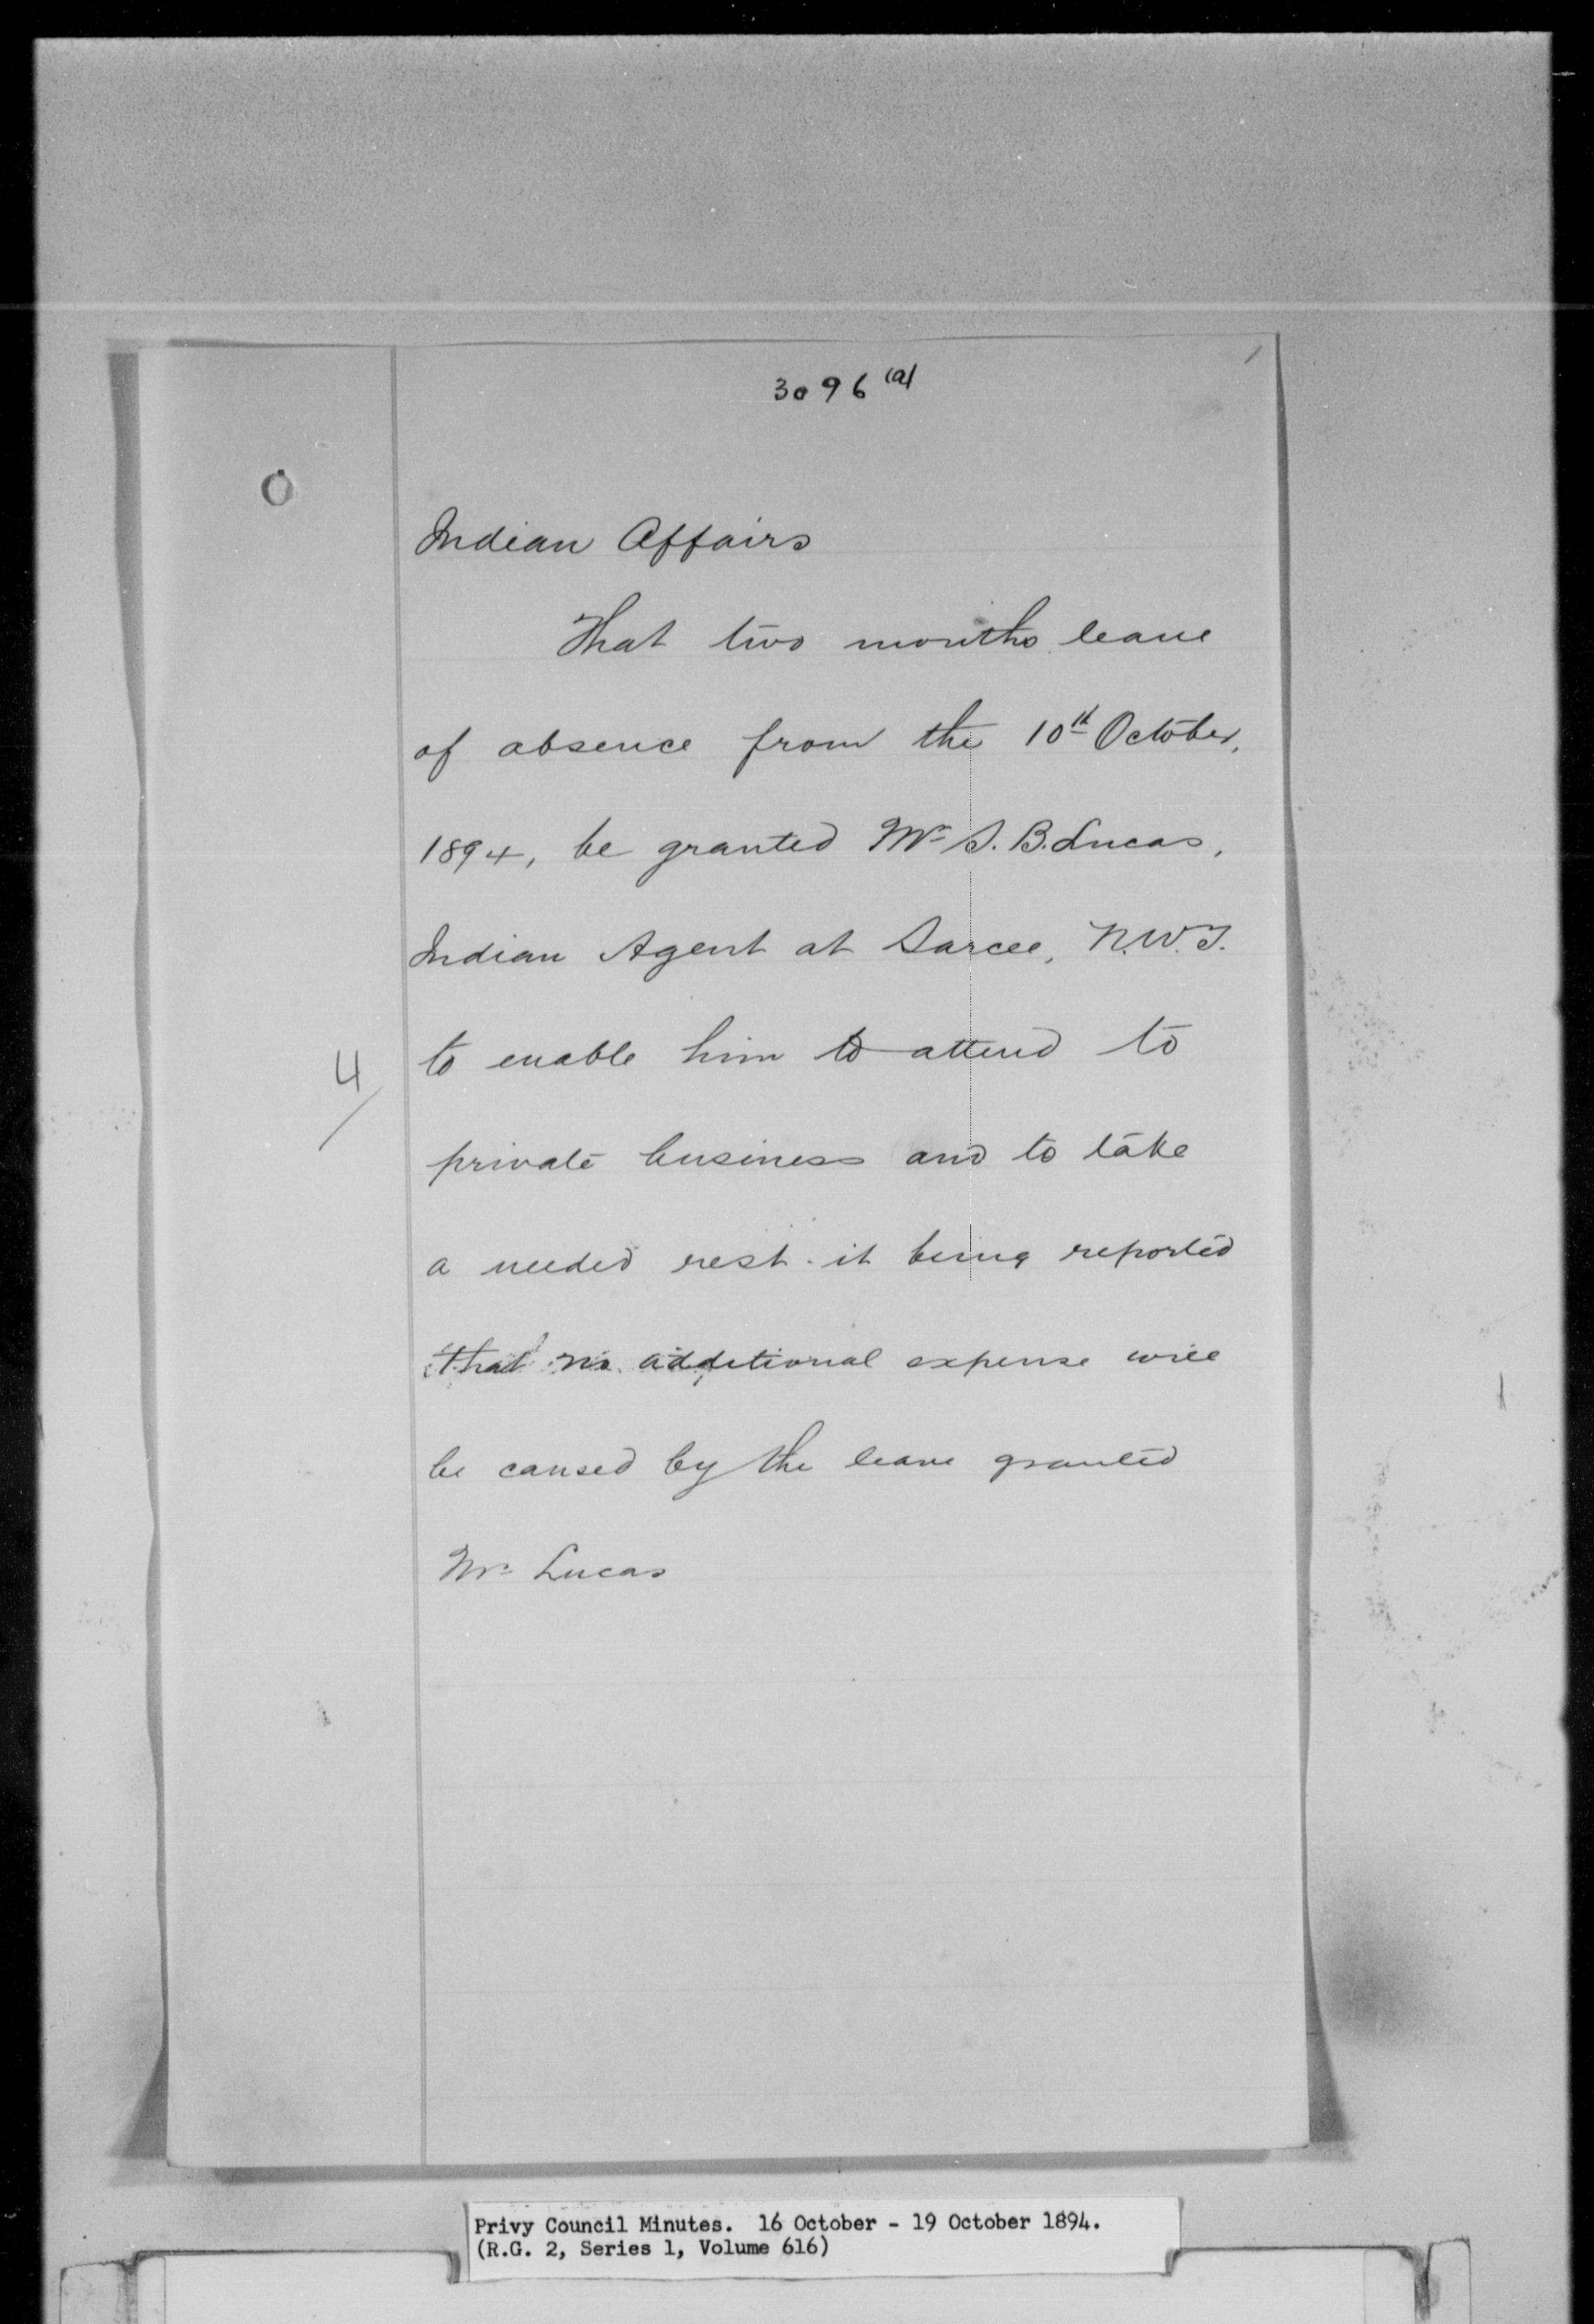 3096 (a)
Indian Affairs
That two months leave
of absence from the 10th October,
1894, be granted Mr S. B. Lucas,
Indian Agent at Sarcee, N.W.T.
4
to enable him to attend to
private business and to take
a needed rest - it being reported
that no additional expense will
be caused by the leave granted
Mr Lucas
Privy Council Minutes. 16 October - 19 October 1894.
(R.G. 2, Series 1, Volume 616)